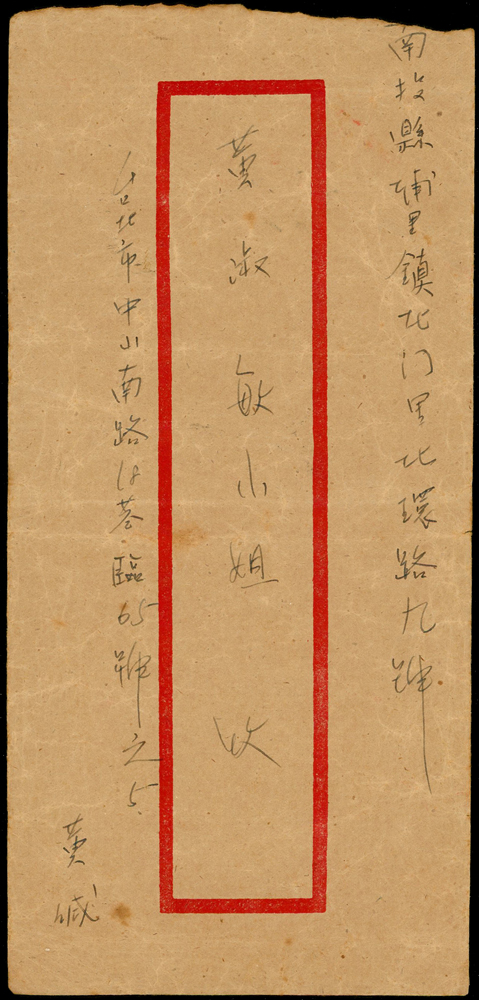 南投縣埔里鎮北门里北環路九號
黃淑敏小姐 收
台北市中山南路18巷臨65號之5
黃緘